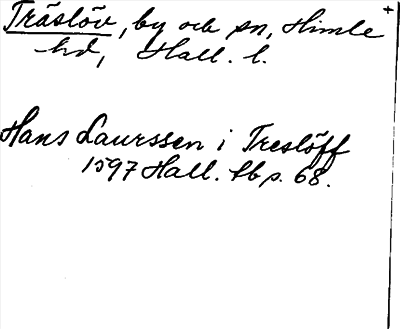 Träslöv, by och sn, Himle
hd, Hall. l.
Hans Laurssen i Treslöff
1597 Hall. tb p. 68.